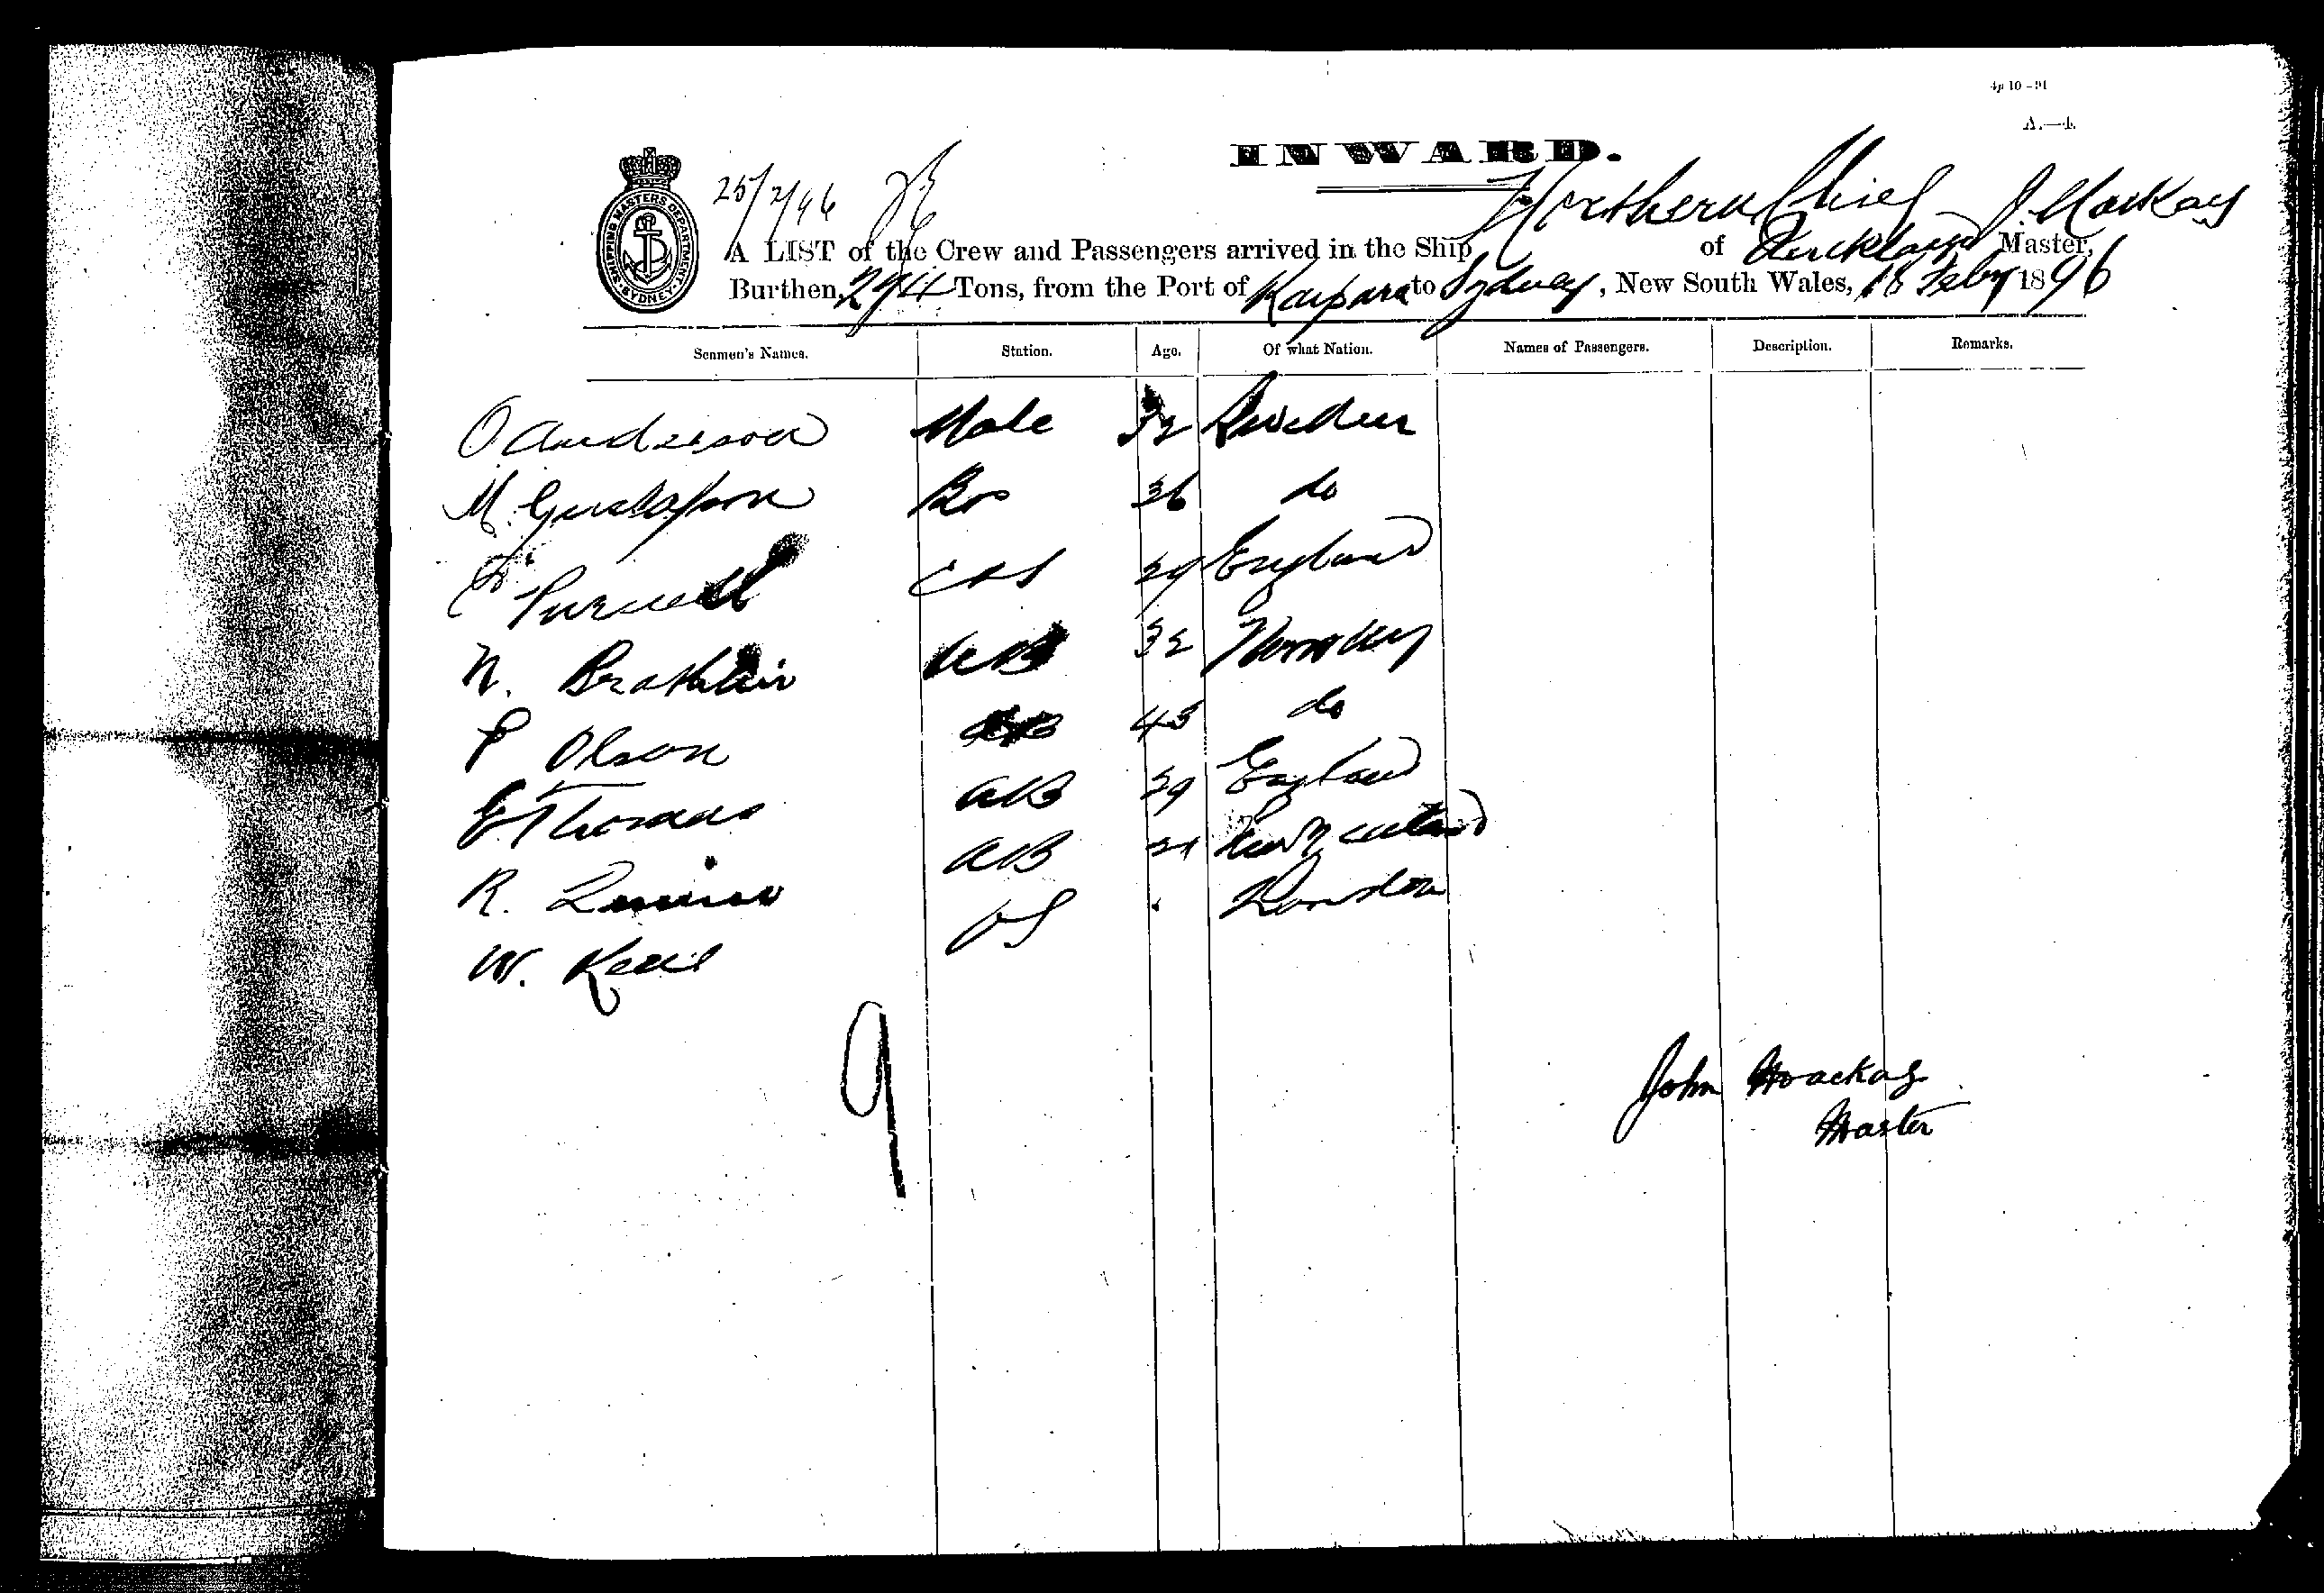 4p 10-91
A.—4.
INWARD.
25/2/96
SHIPPING MASTERS DEPARTMENT SYDNEY
A LIST of the Crew and Passengers arrived in the Ship Northern Chief of Auckland J. Mackay Master,
Burthen, 294 Tons, from the Port of Kaipara to Sydney, New South Wales, 18 Feby 1896
Seamen's Names. Station. Age. Of what Nation. Names of Passengers. Description. Remarks.
O Anderson Mate 32 Sweden
M. Gustafson Bos 36 do
Purnell C&S 29 England
N. AB 32 Norway
P Olson AB 43 do
E Thomas AB 29 England
R. AB New Zealand
W. OS London
9
John Mackay
Master